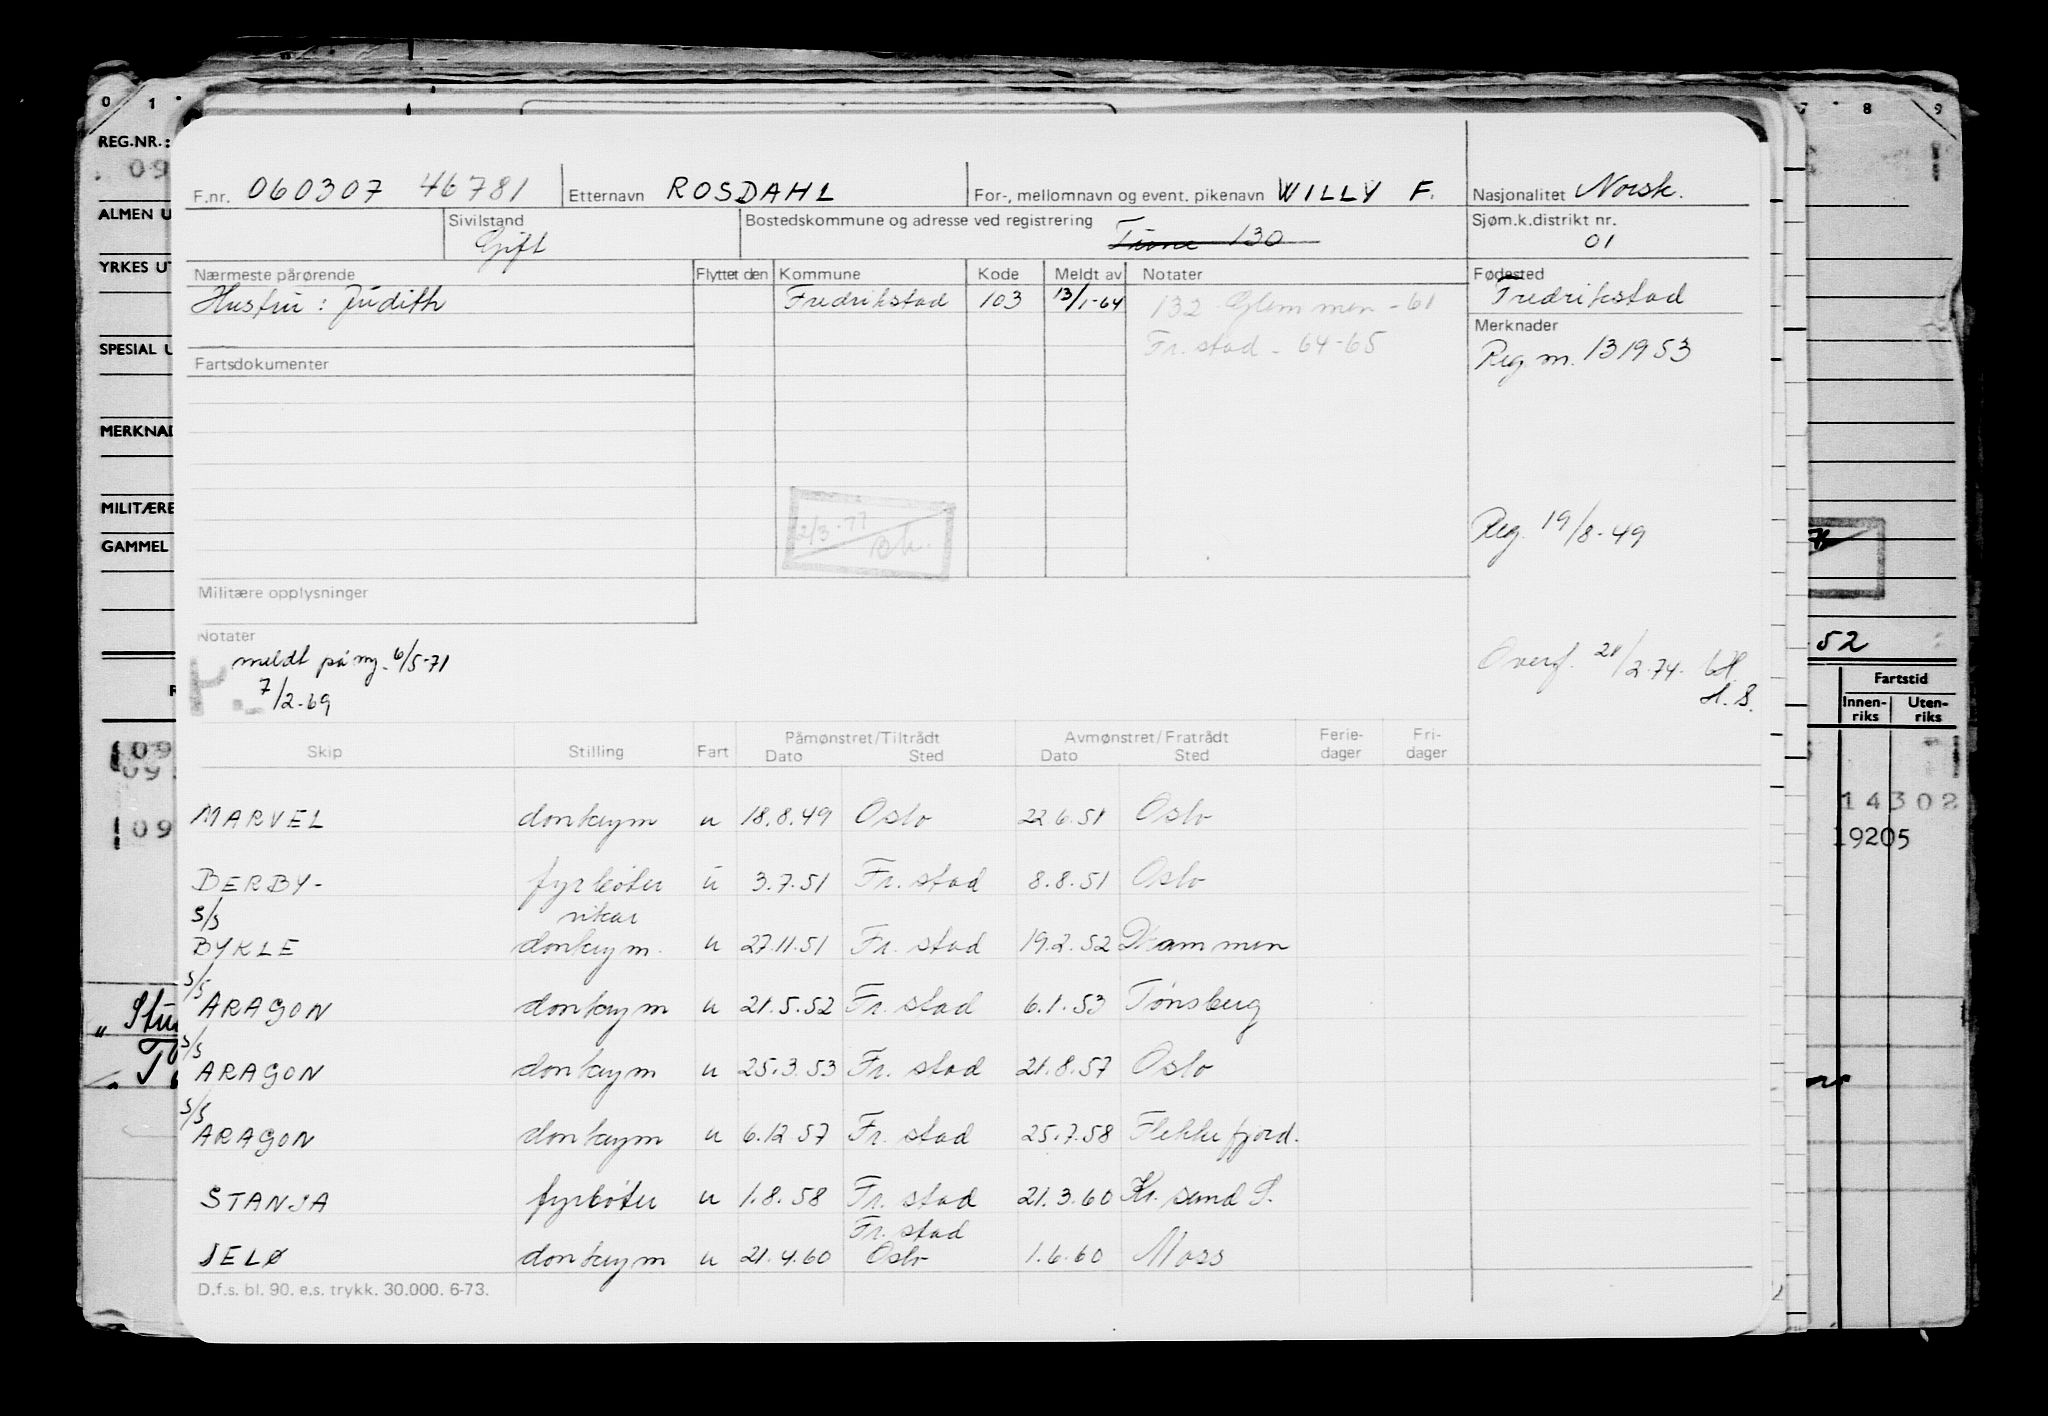 0 1 7 8 9
REG.NR.:
09
ALMEN U
YRKES UT
SPESIAL U
MERKNAD
MILITÆRE
GAMMEL
F.nr. 060307 46781 Etternavn ROSDAHL For-, mellomnavn og event. pikenavn WILLY F. Nasjonalitet Norsk.
Sivilstand Gift Bostedskommune og adresse ved registrering 130 Sjøm.k.distrikt nr. 01
Nærmeste pårørende Flyttet den Kommune Kode Meldt av Notater Fødested
Hustru: Judith Fredrikstad 103 13/1-64 132 Glemmen -61 Fredrikstad
Fr. stad - 64-65
Merknader
Reg m. 131953
Fartsdokumenter
2/3-77
Reg. 19/8-49
Militære opplysninger
Notater
meldt på ny. 6/5-71
7/2-69
Overf. 21/2-74.
52
Fartstid
Innen-riks Uten-riks
Skip Stilling Fart Påmønstret/Tiltrådt Dato Sted Avmønstret/Fratrådt Dato Sted Ferie-dager Fri-dager
MARVEL donkeym u 18.8.49 Oslo 22.6.51 Oslo
14302
19205
BERBY- fyrbøter u 3.7.51 Fr. stad 8.8.51 Oslo
S/S BYKLE vikar donkeym. u 27.11.51 Fr. stad 19.2.52 Drammen
S/S ARAGON donkeym u 21.5.52 Fr. stad 6.1.53 Tønsberg
S/S ARAGON donkeym u 25.3.53 Fr. stad 21.8.57 Oslo
S/S ARAGON donkeym u 6.12.57 Fr. stad 25.7.58 Flekkefjord.
STANJA fyrbøter u 1.8.58 Fr. stad 21.3.60 Kr. sand S.
Fr. stad
JELØ donkeym u 21.4.60 Oslo 1.6.60 Moss
D.f.s. bl. 90. e.s. trykk. 30.000. 6-73.